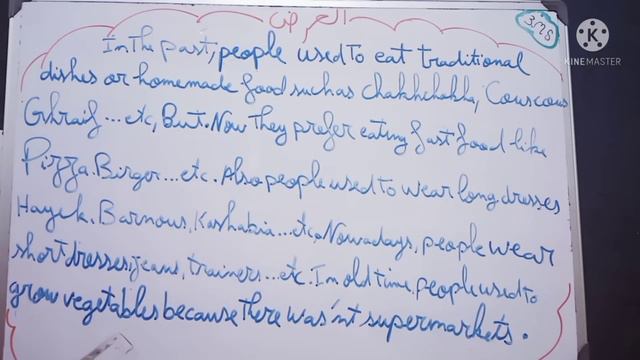 العرض
3MS
KINEMASTER
In the past, people used to eat traditional
dishes or homemade food such as chakhchokha, Couscous
Ghraif...etc, But. Now they prefer eating fast food like
Pizza. Birger...etc. Also people used to wear long dresses
Hayek. Barnous, Kashabia...etc. Nowadays, people wear
short dresses, jeans, trainers...etc. In old time, people used to
grow vegetables because there was'nt supermarkets.